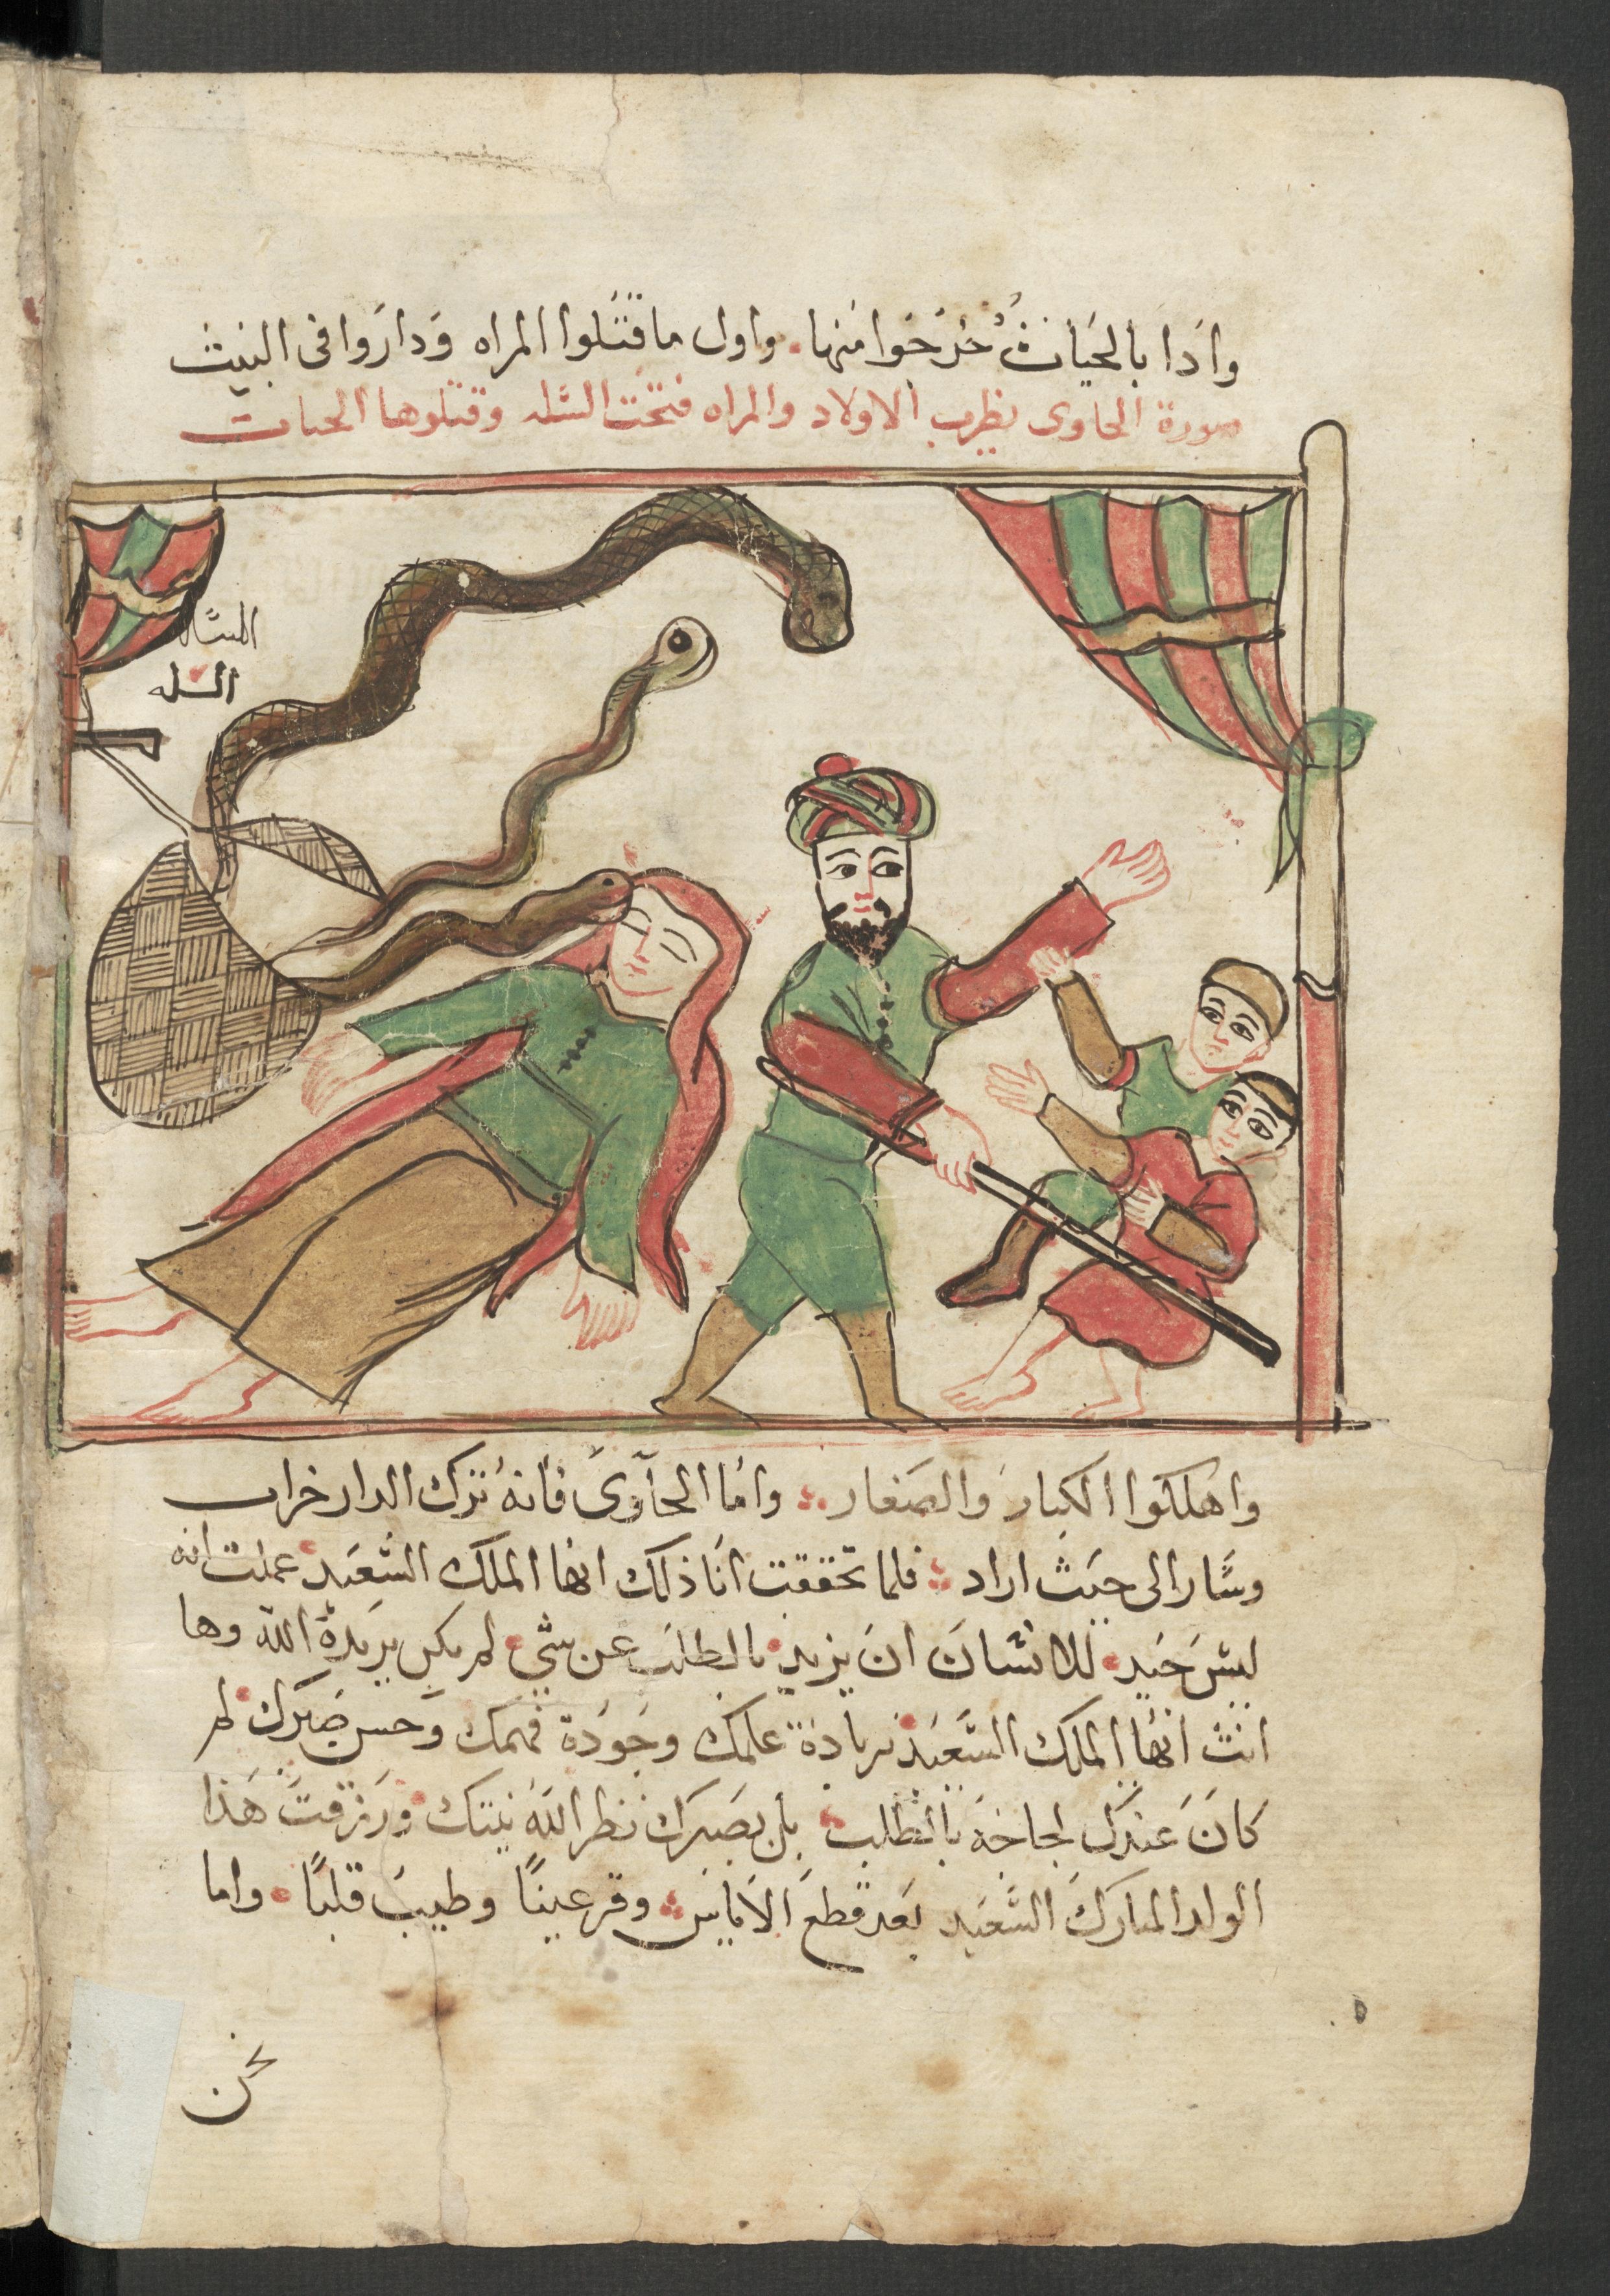 واذا بالحيات خرجوا منها. واول ما قتلوا المراه وداروا فى البيت
صورة الحاوى يظرب الاولاد والمراه فتحت السله وقتلوها الحيات
السله
واهلكوا الكبار والصغار واما الحاوى فانه ترك الدار خراب
وسار الى حيث اراد فلما تحققت انا ذلك ايها الملك السعيد علمت انه
ليس جيد للانسان ان يزيد بالطلب عن شي لم يكن يريده الله وها
انت ايها الملك السعيد بزيادة علمك وجودة فهمك وحسن صبرك لم
كان عندك لجاجة بالطلب بل بصبرك نظر الله نيتك ورزقت هذا
الولد المبارك السعيد بعد قطع الاياس وقر عينًا وطيب قلبًا واما
نحن